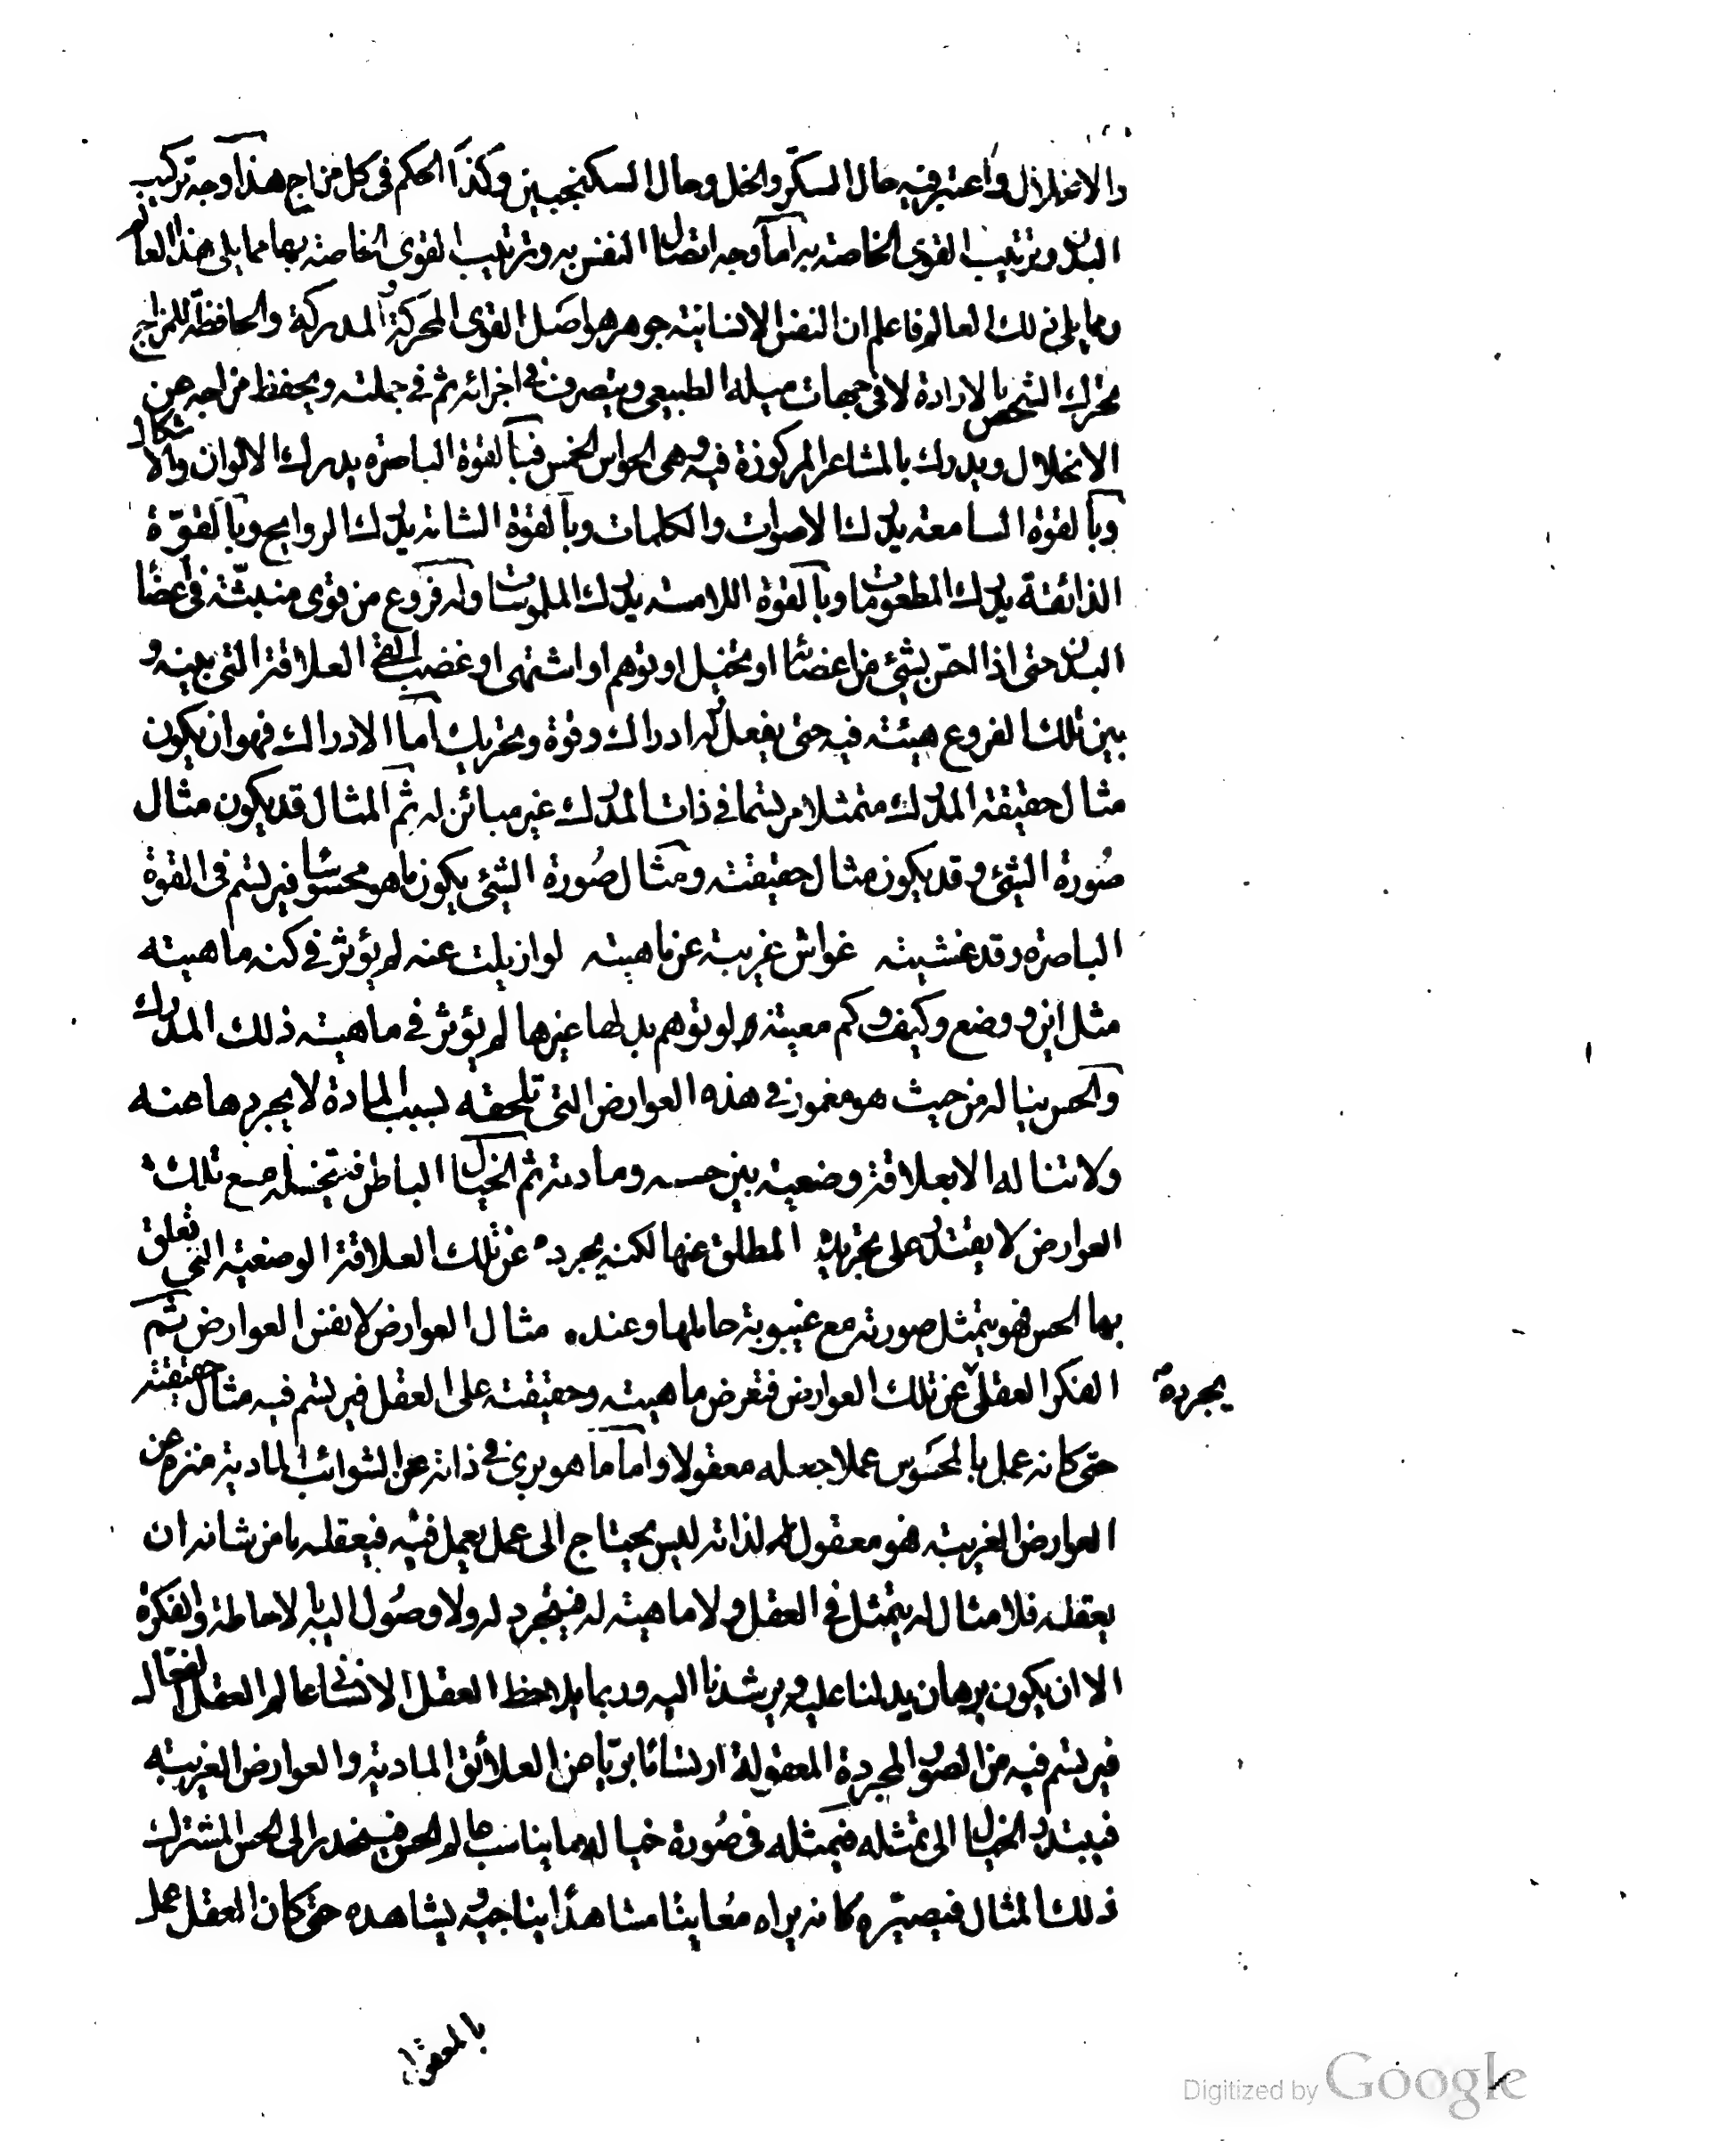 والانخلال واعتبر فيه حال السكر والخل وحال السكنجبين وكذا الحكم في كل مزاج هذا وجه تركيب
البدن وترتيب القوى الخاصة به اما وجه اتصال النفس به وترتيب القوى الخاصة بها مما يلى هذا العالم
ومما يلى ذلك العالم فاعلم ان النفس الانسانية جوهر هو اصل القوى المحركة والمدركة والحافظة للمزاج
محرك الشخص بالارادة لا فى جهات ميله الطبيعى ويتصرف فى اجزائه ثم فى جملته ويحفظ مزاجه عن
الانخلال ويدرك بالمشاعر المركوزة فيه وهى الحواس الخمس فبالقوة الباصرة يدرك الالوان والاشكال
وبالقوة السامعة يدرك الاصوات والكلمات وبالقوة الشامة يدرك الروايح وبالقوّة
الذائقة يدرك المطعومات وبالقوة اللامسة يدرك الملموسات وله فروع من قوى منبثّة فى أعضاء
البدن حتى اذا احسّ بشئ من اعضائنا او تخيل او توهم او اشتهى او غضب القى العلاقة التى بينه و
بين تلك الفروع هيئته فيه حتى يفعل له ادراك وقوة وتحريك اما الادراك فهو ان يكون
مثال حقيقة المدرك متمثلا مرتسما فى ذات المدرك غير مبائن له ثم المثال قد يكون مثال
صُورة الشئ وقد يكون مثال حقيقته ومثال صُورة الشئ يكون ما هو محسوسا فيرتسم فى القوة
الباصرة وقد غشيته غواش غريبة عن ماهيته لو ازيلت عنه لم يؤثر فى كنه ماهيته
مثل اين ووضع وكيف وكم معينة ولو توهم بدلها غيرها لم يؤثر فى ماهية ذلك المدرك
والحس يناله من حيث هو مغمور فى هذه العوارض التى تلحقه بسبب المادة لا يجردها عنه
ولا تناله الا بعلاقة وضعية بين حسه ومادته ثم الخيال الباطن فيتخيله مع تلك
العوارض لا يقتدر على تجريده المطلق عنها لكنه يجرده عن تلك العلاقة الوضعية التى تعلق
بها الحس فهو يتمثل صورته مع غيبوبة حاملها وعنده مثال العوارض لا نفس العوارض ثم
الفكر العقلى عن تلك العوارض فتعرض ماهيته وحقيقته على العقل فيرتسم فيه مثال حقيقته
يجرده
حتى كانه عمل بالمحسوس عملا جعله معقولا واما ما هو برئ فى ذاته عن الشوائب المادية منزه عن
العوارض الغريبة فهو معقول لذاته ليس يحتاج الى عمل يعمل فيه فيعقله ما من شانه ان
يعقله فلا مثال له يتمثل فى العقل ولا ماهية له فيتجرد له ولا وصُول اليه بالاحاطة والفكرة
الا ان يكون برهان يدلنا عليه ويرشدنا اليه وربما يلاحظ العقل الانسانى عالم العقل الفعال
فيرتسم فيه من الصور المجردة المعقولة ارتساما بريّا من العلائق المادية والعوارض الغريبة
فيبتدر الخيال الى تمثله فيتمثله فى صُورة خيالية مما يناسب عالم الحس فينحدر الى الحس المشترك
ذلك المثال فيصيره كانه يراه مُعاينا مشاهدا يناجيه ويشاهده حتى كان العقل عمل
بالمعقول
Digitized by Google